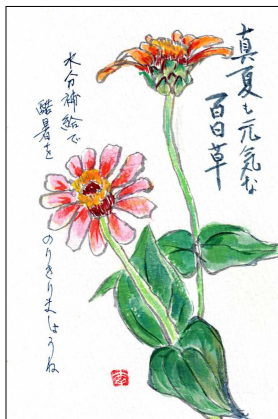 真夏も元気な
百日草
水分補給で
酷暑を
のりきりましょうね